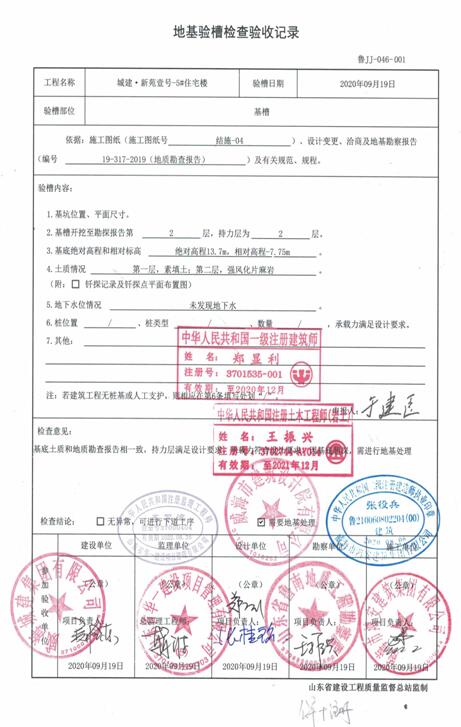 地基验槽检查验收记录
鲁JJ-046-001
工程名称 城建·新苑壹号-5#住宅楼 验槽日期 2020年09月19日
验槽部位 基槽
依据：施工图纸（施工图纸号 结施-04 ）、设计变更、洽商及地基勘察报告
（编号 19-317-2019（地质勘查报告） ）及有关规范、规程。
验槽内容：
1.基坑位置、平面尺寸。
2.基槽开挖至勘探报告第 2 层，持力层为 2 层。
3.基底绝对高程和相对标高 绝对高程13.7m，相对高程-7.75m 。
4.土质情况 第一层，素填土；第二层，强风化片麻岩 。
（附：□ 钎探记录及钎探点平面布置图）
5.地下水位情况 未发现地下水 。
6.桩位置 / 、桩类型 / 、数量 / ，承载力满足设计要求。
7.其他：
中华人民共和国一级注册建筑师
姓名：郑显利
注册号：3701535-001
有效期：至2020年12月
注：若建筑工程无桩基或人工支护，则相应在第6条填写处划“/”。
申报人：
中华人民共和国注册土木工程师(岩土)
姓名：王振兴
有效期：至2021年12月
检查意见：
基底土质和地质勘查报告相一致，持力层满足设计要求，
需进行地基处理
张役兵
鲁210060802204(00)
建筑
检查结论： □ 无异常，可进行下道工序 ☑ 需要地基处理
参加验收单位 建设单位 监理单位 设计单位 勘察单位 施工单位
（公章） （公章） （公章） （公章） （公章）
项目负责人： 总监理工程师： 项目负责人： 项目负责人： 项目负责人：
2020年09月19日 2020年09月19日 2020年09月19日 2020年09月19日 2020年09月19日
山东省建设工程质量监督总站监制